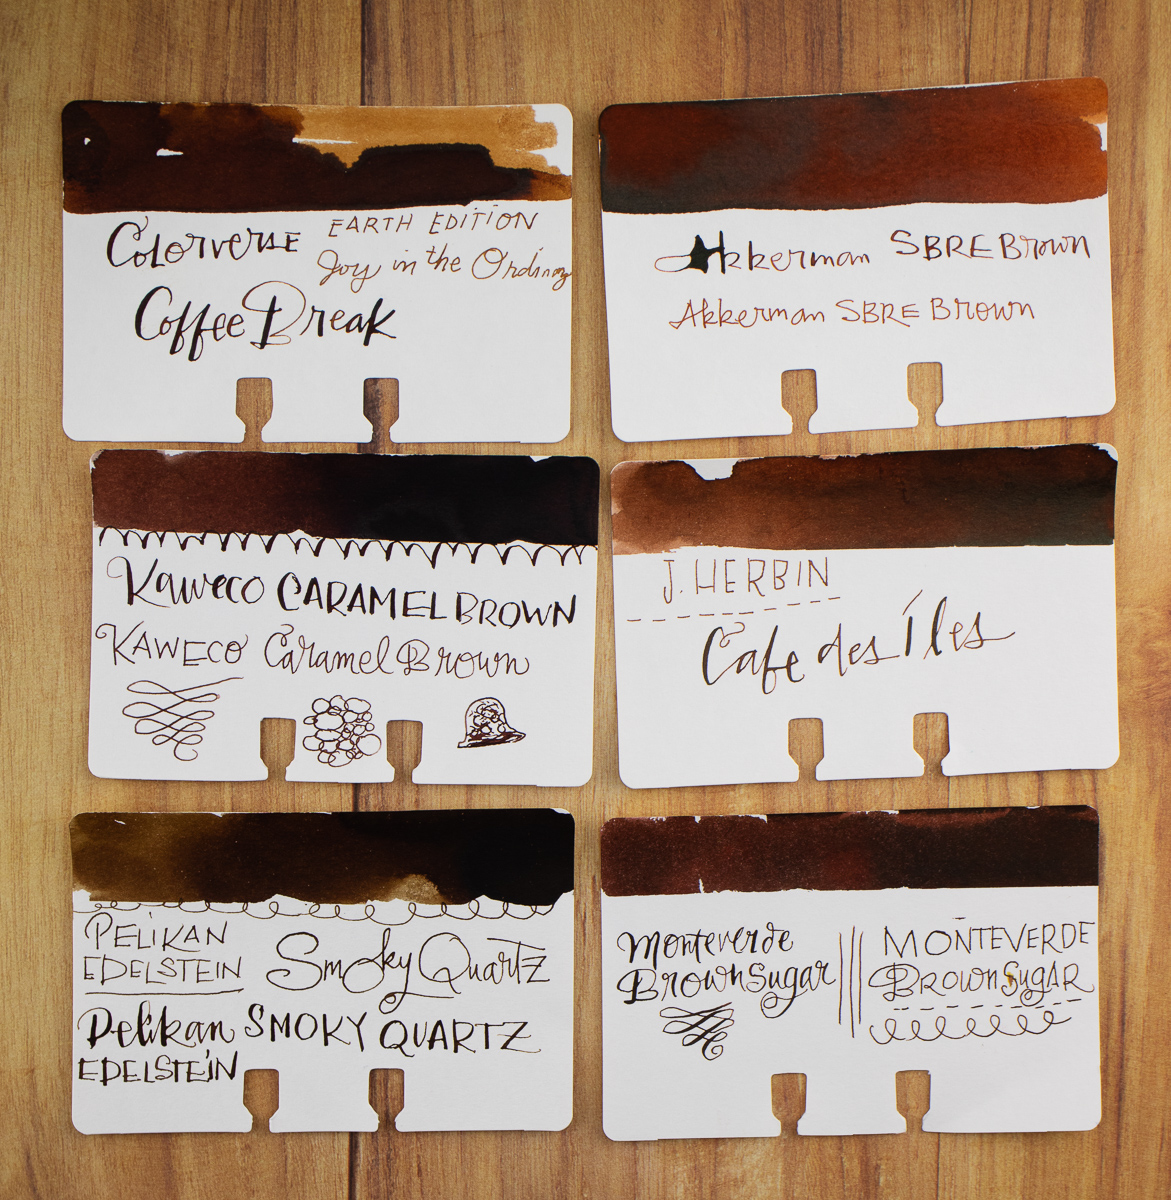 Colorverse EARTH EDITION
Joy in the Ordinary
Coffee Break
Akkerman SBRE Brown
Akkerman SBRE Brown
Kaweco CARAMEL BROWN
KAWECO Caramel Brown
J. HERBIN
Cafe des Îles
PELIKAN
EDELSTEIN
Smoky Quartz
Pelikan SMOKY QUARTZ
EDELSTEIN
Monteverde
Brown Sugar
MONTEVERDE
BROWN SUGAR